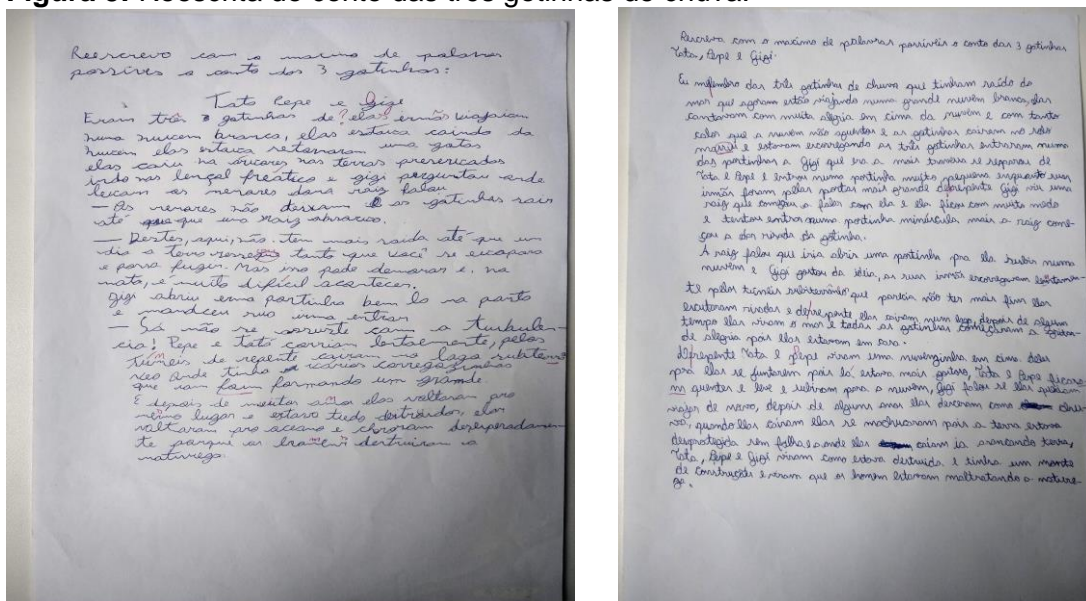 Reescrevo com o maximo de palavras
possíveis o conto das 3 gotinhas:
Tato Pepe e Gige
Eram três 3 gotinhas de? elas? ermãs viajavam
numa nuvem branca, elas estava caindo da
nuvem elas estava retornaram uma gotas
elas caiu na árvores nas terras
indo nas lençol freático e gigi perguntou onde
as dona raiz falou
— As não deixam as gotinhas sair
até que que uma raiz
— Destes, aqui, não. Tem mais saída até que um
dia a terra tanto que você se escapara
e possa fugir. Mas isso pode demorar e, na
mata, é muito difícil acontecer.
gigi abriu uma portinha bem lo na parto
e mandceu sua irmã entrar
— Só não se assuste com a turbulen-
cia! Pepe e Tató corriam lentaemente, pelos
túmeis de repente cairam no lago subterra
neo onde tinha varios corregozinhos
que iam foim formando um grande.
E depois de muitos anos elas voltaram pro
mesmo lugar e estava tudo destroidos, elas
voltaram pro oceano e choroam desesperadamen
te porque os destruiram a
natureza.
Rescreva com o maximo de palavras possivéis o conto das 3 gotinhas
Tata, Pepe e Gigi.
Eu das três gotinhas de chuva que tinham saído do
mar que agoram estão viajando numa grande nuvem branca, elas
cantavam com muita alegria em cima da nuvem e com tanto
calor que a nuvem não aguntou e as gotinhas cairam no solo
e estavam escorregando as três gotinhas entraram numa
das portinhas a Gigi que era a mais se separou de
Tata e Pepe e entrou numa portinha muito pequena enquanto suas
irmãs foram pelas portas mais grande derepente Gigi viu uma
raiz que começou a falar com ela e ela ficou com muito medo
e tentou entrar numa portinha minúscula mais a raiz come-
çou a dar risada da gotinha.
A raiz falou que iria abrir uma portinha pra ela subir numa
nuvem e Gigi gostou da ideia, as suas irmãs escorregavam lentamen-
te pelos tuneis subterrâneo que parecia não ter mais fim elas
escutaram risadas e derepente elas cairam num lago, depois de algum
tempo elas viram o mar e todas as gotinhas começaram a
de alegria pois elas estavam em casa.
derepente Tata e Pepe viram uma nuvenzinha em cima delas
pra elas se juntarem pois lá estava mais gostoso, Tata e Pepe ficara
m quentes e leve e subiram para a nuvem, Gigi falou se elas queriam
viajar de novo, depois de alguns anos elas desceram como chu
va, quando elas cairam elas se machucaram pois a terra estava
desprotegida sem folhas aonde elas caiam ia arrancando terra,
Tata, Pepe e Gigi viram como estava destruida e tinha um monte
de construções e viram que os homem estavam maltratando a nature-
za.